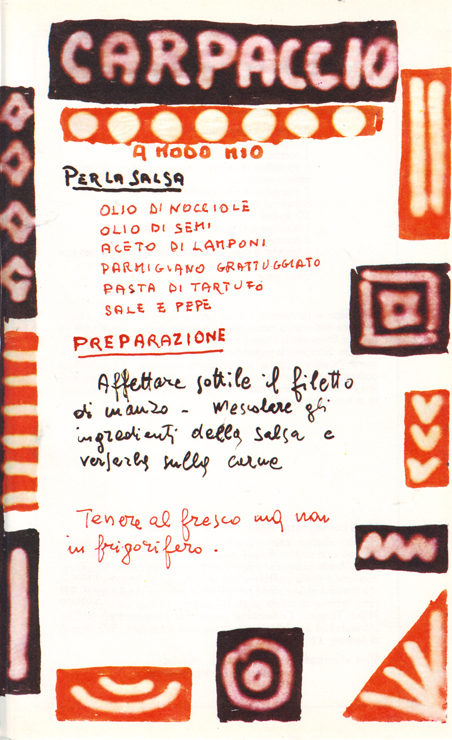 CARPACCIO
A MODO MIO
PER LA SALSA
OLIO DI NOCCIOLE
OLIO DI SEMI
ACETO DI LAMPONI
PARMIGIANO GRATTUGGIATO
PASTA DI TARTUFO
SALE E PEPE
PREPARAZIONE
Affettare sottile il filetto
di manzo - Mescolare gli
ingredienti della salsa e
versarla sulla carne
Tenere al fresco ma non
in frigorifero.